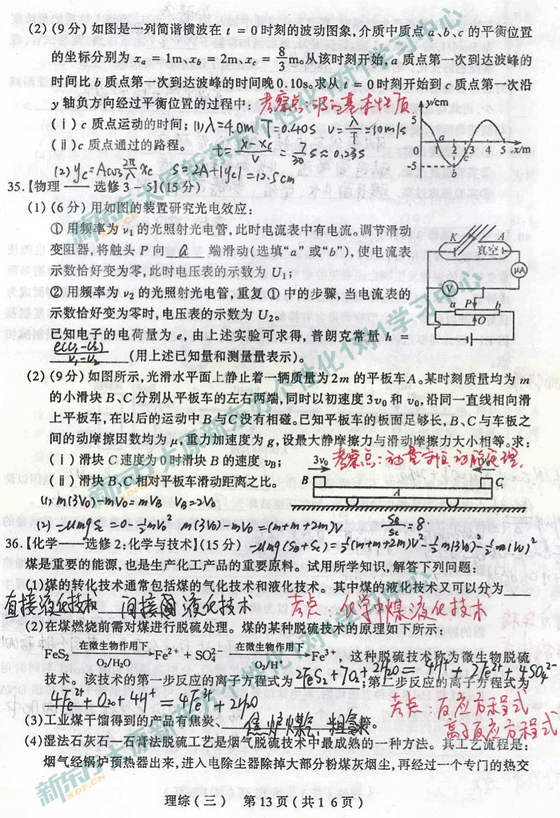 (2) (9分) 如图是一列简谐横波在 t = 0 时刻的波动图象,介质中质点 a、b、c 的平衡位置
的坐标分别为 xₐ = 1m、x_b = 2m、x_c = 8/3 m。从该时刻开始,a 质点第一次到达波峰的
时间比 b 质点第一次到达波峰的时间晚 0.10s。求从 t = 0 时刻开始到 c 质点第一次沿
y 轴负方向经过平衡位置的过程中:
(ⅰ) c 质点运动的时间; (1) λ=4.0m T=0.40s v=λ/T=10m/s
(ⅱ) c 质点通过的路程。 t=(x-xc)/v = 7/30 s ≈ 0.23s
(2) yc=Acos 2π/λ xc s=2A+|yc|=12.5cm
y/cm
5
0
-5
a 1 2 b c 3 4 5 x/m
35.【物理——选修 3-5】(15分)
(1) (6分) 用如图的装置研究光电效应:
① 用频率为 ν₁ 的光照射光电管,此时电流表中有电流。调节滑动
变阻器,将触头 P 向 a 端滑动(选填“a”或“b”),使电流表
示数恰好变为零,此时电压表的示数为 U₁;
② 用频率为 ν₂ 的光照射光电管,重复 ① 中的步骤,当电流表的
示数恰好变为零时,电压表的示数为 U₂。
已知电子的电荷量为 e,由上述实验可求得,普朗克常量 h =
e(U₁-U₂)/ν₁-ν₂ (用上述已知量和测量量表示)。
K A 真空 V μA a P b O
(2) (9分) 如图所示,光滑水平面上静止着一辆质量为 2m 的平板车 A。某时刻质量均为 m
的小滑块 B、C 分别从平板车的左右两端,同时以初速度 3v₀ 和 v₀,沿同一直线相向滑
上平板车,在以后的运动中 B 与 C 没有相碰。已知平板车的板面足够长,B、C 与车板之
间的动摩擦因数均为 μ,重力加速度为 g,设最大静摩擦力与滑动摩擦力大小相等。求:
(ⅰ) 滑块 C 速度为 0 时滑块 B 的速度 v_B;
(ⅱ) 滑块 B、C 相对平板车滑动距离之比。
3v₀ v₀ B C A
(1) m(3V₀)-mV₀=mVB VB=2V₀
(2) m(3V₀)-mV₀=(m+m+2m)V SB/SC=8
36.【化学——选修 2:化学与技术】(15分)
煤是重要的能源,也是生产化工产品的重要原料。试用所学知识,解答下列问题:
(1) 煤的转化技术通常包括煤的气化技术和液化技术。其中煤的液化技术又可以分为
直接液化技术 间接液化技术 考点:化学中煤液化技术
(2) 在煤燃烧前需对煤进行脱硫处理。煤的某种脱硫技术的原理如下所示:
FeS₂ 在微生物作用下 O₂/H₂O Fe²⁺ + SO₄²⁻ 在微生物作用下 O₂/H⁺ Fe³⁺ ,这种脱硫技术称为微生物脱硫
技术。该技术的第一步反应的离子方程式为 2FeS₂+7O₂+2H₂O=4H⁺+2Fe²⁺+4SO₄²⁻ ;第二步反应的离子方程式为
4Fe²⁺+O₂+4H⁺=4Fe³⁺+2H₂O 考点:反应方程式
离子反应方程式
(3) 工业煤干馏得到的产品有焦炭、 焦炉煤气、粗氨 等。
(4) 湿法石灰石—石膏法脱硫工艺是烟气脱硫技术中最成熟的一种方法。其工艺流程是:
烟气经锅炉预热器出来,进入电除尘器除掉大部分粉煤灰烟尘,再经过一个专门的热交
理综(三) 第13页(共16页)